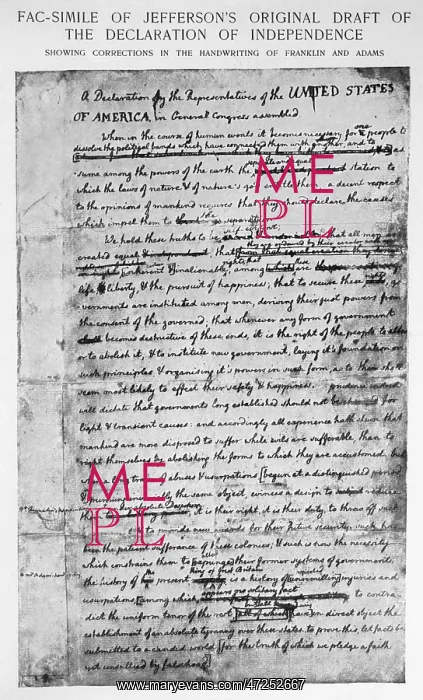 FAC-SIMILE OF JEFFERSON'S ORIGINAL DRAFT OF
THE DECLARATION OF INDEPENDENCE
SHOWING CORRECTIONS IN THE HANDWRITING OF FRANKLIN AND ADAMS
A Declaration by the Representatives of the UNITED STATES
OF AMERICA, in General Congress assembled.
When in the course of human events it becomes necessary for one people to
dissolve the political bands which have connected them with another, and to
-sume among the powers of the earth the station to
which the laws of nature & of nature's god them, a decent respect
to the opinions of mankind requires that they should declare the causes
which impel them to the separation.
We hold these truths to be self-evident, that all men are
created equal
they are endowed by their creator with
inherent & inalienable, among are
rights; that these
life, liberty, & the pursuit of happiness; that to secure these go
vernments are instituted among men, deriving their just powers from
the consent of the governed; that whenever any form of government
becomes destructive of these ends, it is the right of the people to alter
or to abolish it, & to institute new government, laying it's foundation on
such principles & organising it's powers in such form, as to them shall
seem most likely to effect their safety & happiness. prudence indeed
will dictate that governments long established should not be changed for
light & transient causes: and accordingly all experience hath shewn that
mankind are more disposed to suffer while evils are sufferable, than to
right themselves by abolishing the forms to which they are accustomed. but
when a long train of abuses & usurpations [begun at a distinguished period
& pursuing invariably the same object, evinces a design to reduce
them it is their right, it is their duty, to throw off such
under absolute Despotism
& to provide new guards for their future security. such has
been the patient sufferance of these colonies; & such is now the necessity
which constrains them to [expunge] their former systems of government.
the history of the present is a history of [unremitting] injuries and
king of Great Britain
usurpations, [among which to contra-
dict the uniform tenor of the rest [all of which have] in direct object the
establishment of an absolute tyranny over these states. to prove this, let facts be
submitted to a candid world, [for the truth of which we pledge a faith
yet unsullied by falsehood]
ME
PL
ME
PL
www.maryevans.com/47252667